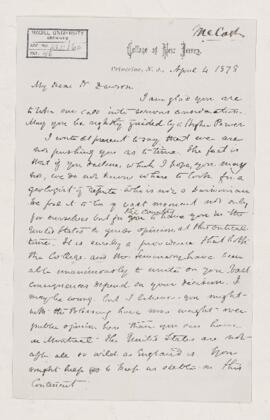 McCosh
McGILL UNIVERSITY
ARCHIVES
ACC. NO.
REF.
College of New Jersey,
Princeton, N. J., April 4 1878
My Dear Dr Dawson.
I am glad you are
to take our call into serious consideration.
May you be rightly guided by a higher Power
I write at present to say that we are
not pushing you as to time. The fact is
that if you decline, which I hope you may
not, we do not know where to look for a
geologist of repute who is not a Darwinian
We feel it to be a great moment not only
for ourselves but for the country to have you in the
United States to guide opinion at this critical
time. It is surely a providence that both
the College and the Seminary have been
able unanimously to unite on you. Great
consequences depend on your decision. I
may be wrong but I believe you might
with the blessing have more weight over
public opinion here than you can have
in Montreal. The United States are not
after all so wild as England is. You
might help us to keep us stable in this
Continent